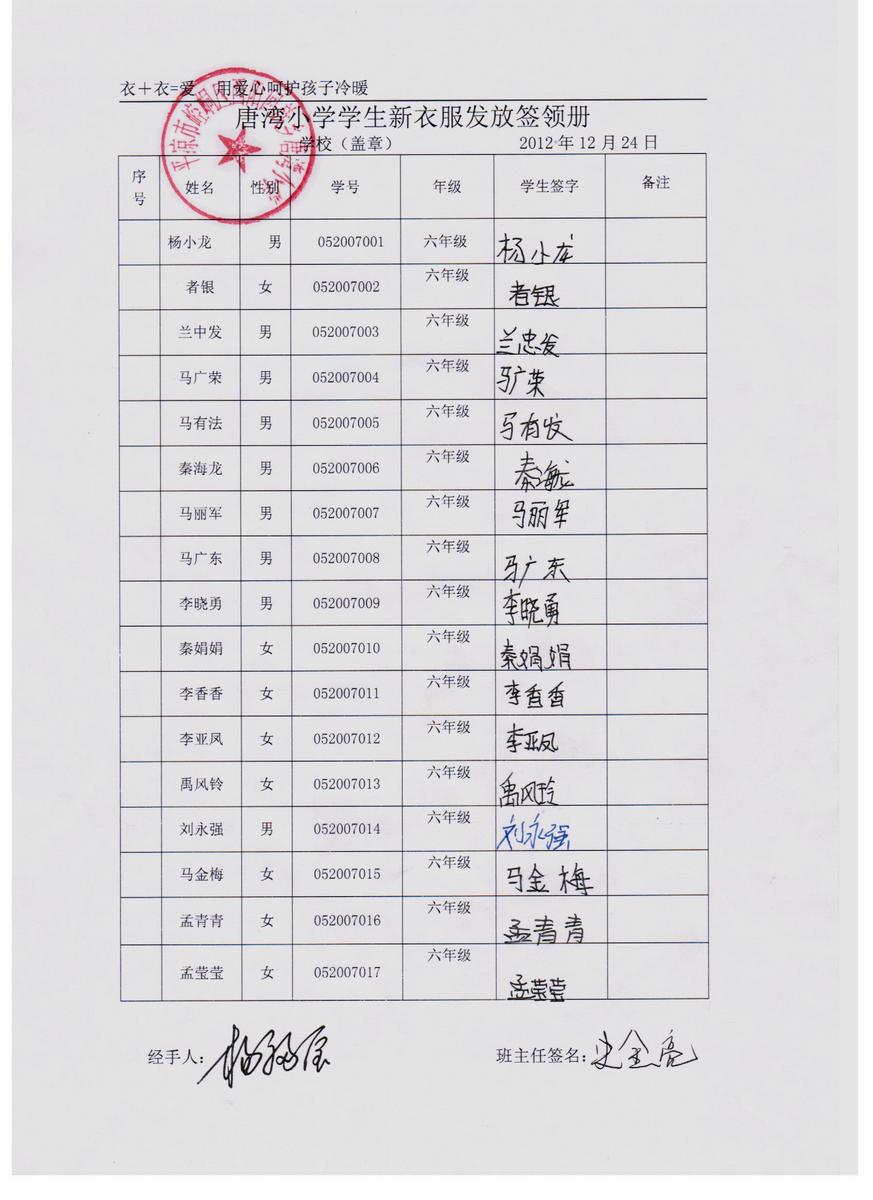 衣＋衣=爱 用爱心呵护孩子冷暖
唐湾小学学生新衣服发放签领册
学校（盖章） 2012 年 12 月 24 日
序号 姓名 性别 学号 年级 学生签字 备注
杨小龙 男 052007001 六年级 杨小龙
者银 女 052007002 六年级 者银
兰中发 男 052007003 六年级 兰忠发
马广荣 男 052007004 六年级 马广荣
马有法 男 052007005 六年级 马有发
秦海龙 男 052007006 六年级 秦海龙
马丽军 男 052007007 六年级 马丽军
马广东 男 052007008 六年级 马广东
李晓勇 男 052007009 六年级 李晓勇
秦娟娟 女 052007010 六年级 秦娟娟
李香香 女 052007011 六年级 李香香
李亚凤 女 052007012 六年级 李亚凤
禹风铃 女 052007013 六年级 禹风玲
刘永强 男 052007014 六年级 刘永强
马金梅 女 052007015 六年级 马金梅
孟青青 女 052007016 六年级 孟青青
孟莹莹 女 052007017 六年级 孟莹莹
经手人： 班主任签名：史金亮